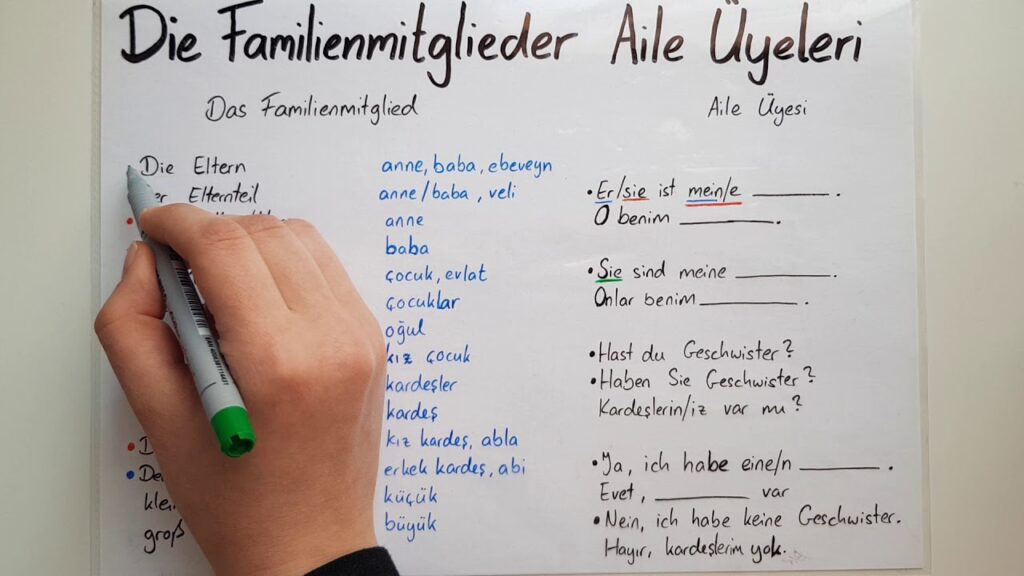 Die Familienmitglieder Aile Üyeleri
Das Familienmitglied Aile Üyesi
Die Eltern anne, baba, ebeveyn
Elternteil anne/baba, veli
anne
baba
çocuk, evlat
çocuklar
oğul
kız çocuk
kardeşler
kardeş
kız kardeş, abla
erkek kardeş, abi
küçük
groß büyük
•Er/sie ist mein/e ________.
O benim ________.
•Sie sind meine ________.
Onlar benim ________.
•Hast du Geschwister?
•Haben Sie Geschwister?
Kardeşlerin/iz var mı?
•Ja, ich habe eine/n ________.
Evet, ________ var
•Nein, ich habe keine Geschwister.
Hayır, kardeşlerim yok.